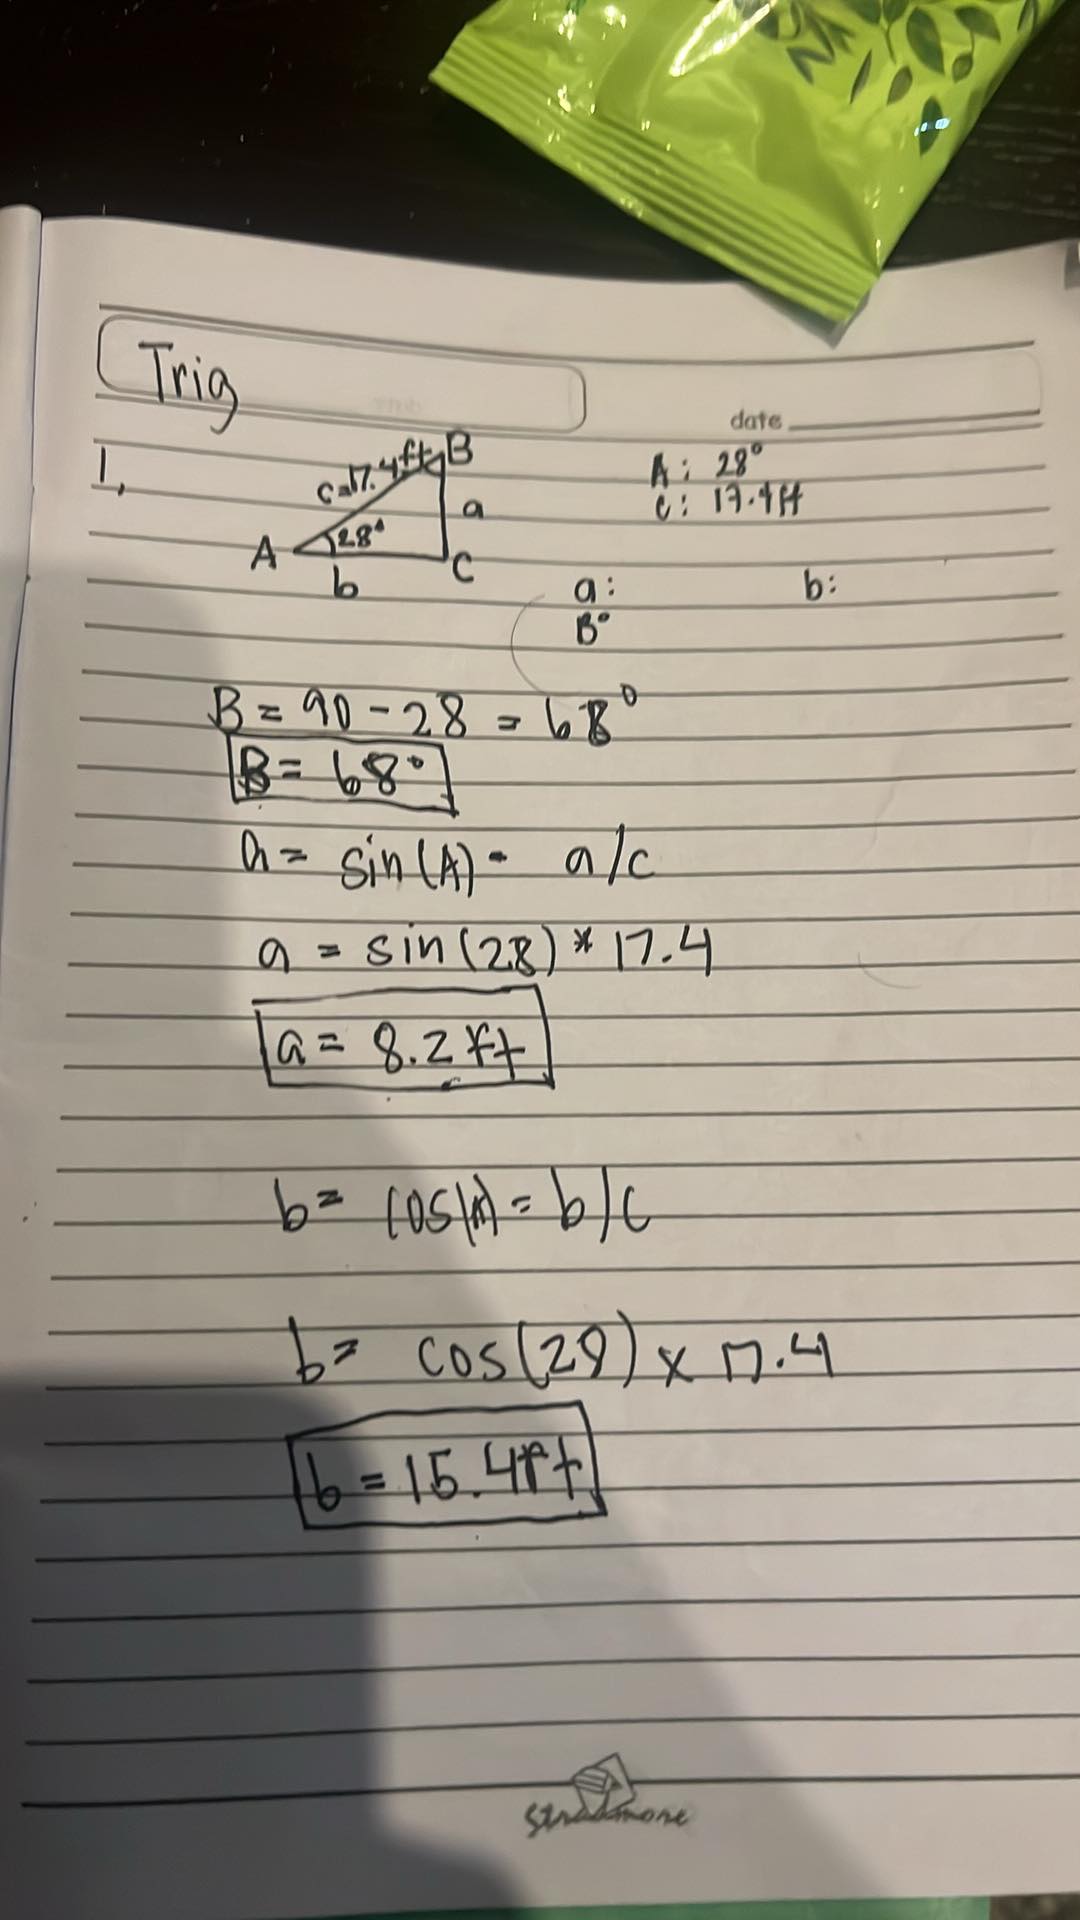 Trig
date
1,
c=17.4ft
B
A: 28°
c: 17.4ft
a
28°
A
b
C
a:
b:
B°
B = 90 - 28 = 68°
B = 68°
a = sin(A) - a/c
a = sin(28) * 17.4
a = 8.2 ft
b = cos(A) = b/c
b = cos(28) x 17.4
b = 15.4ft
Strathmore